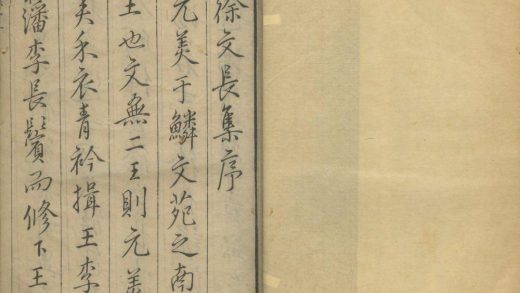 徐文長集序
元美于鱗文苑之南
王也文無二王則元美
矣禾衣青衿揖王李
潘李長鬢而修下王